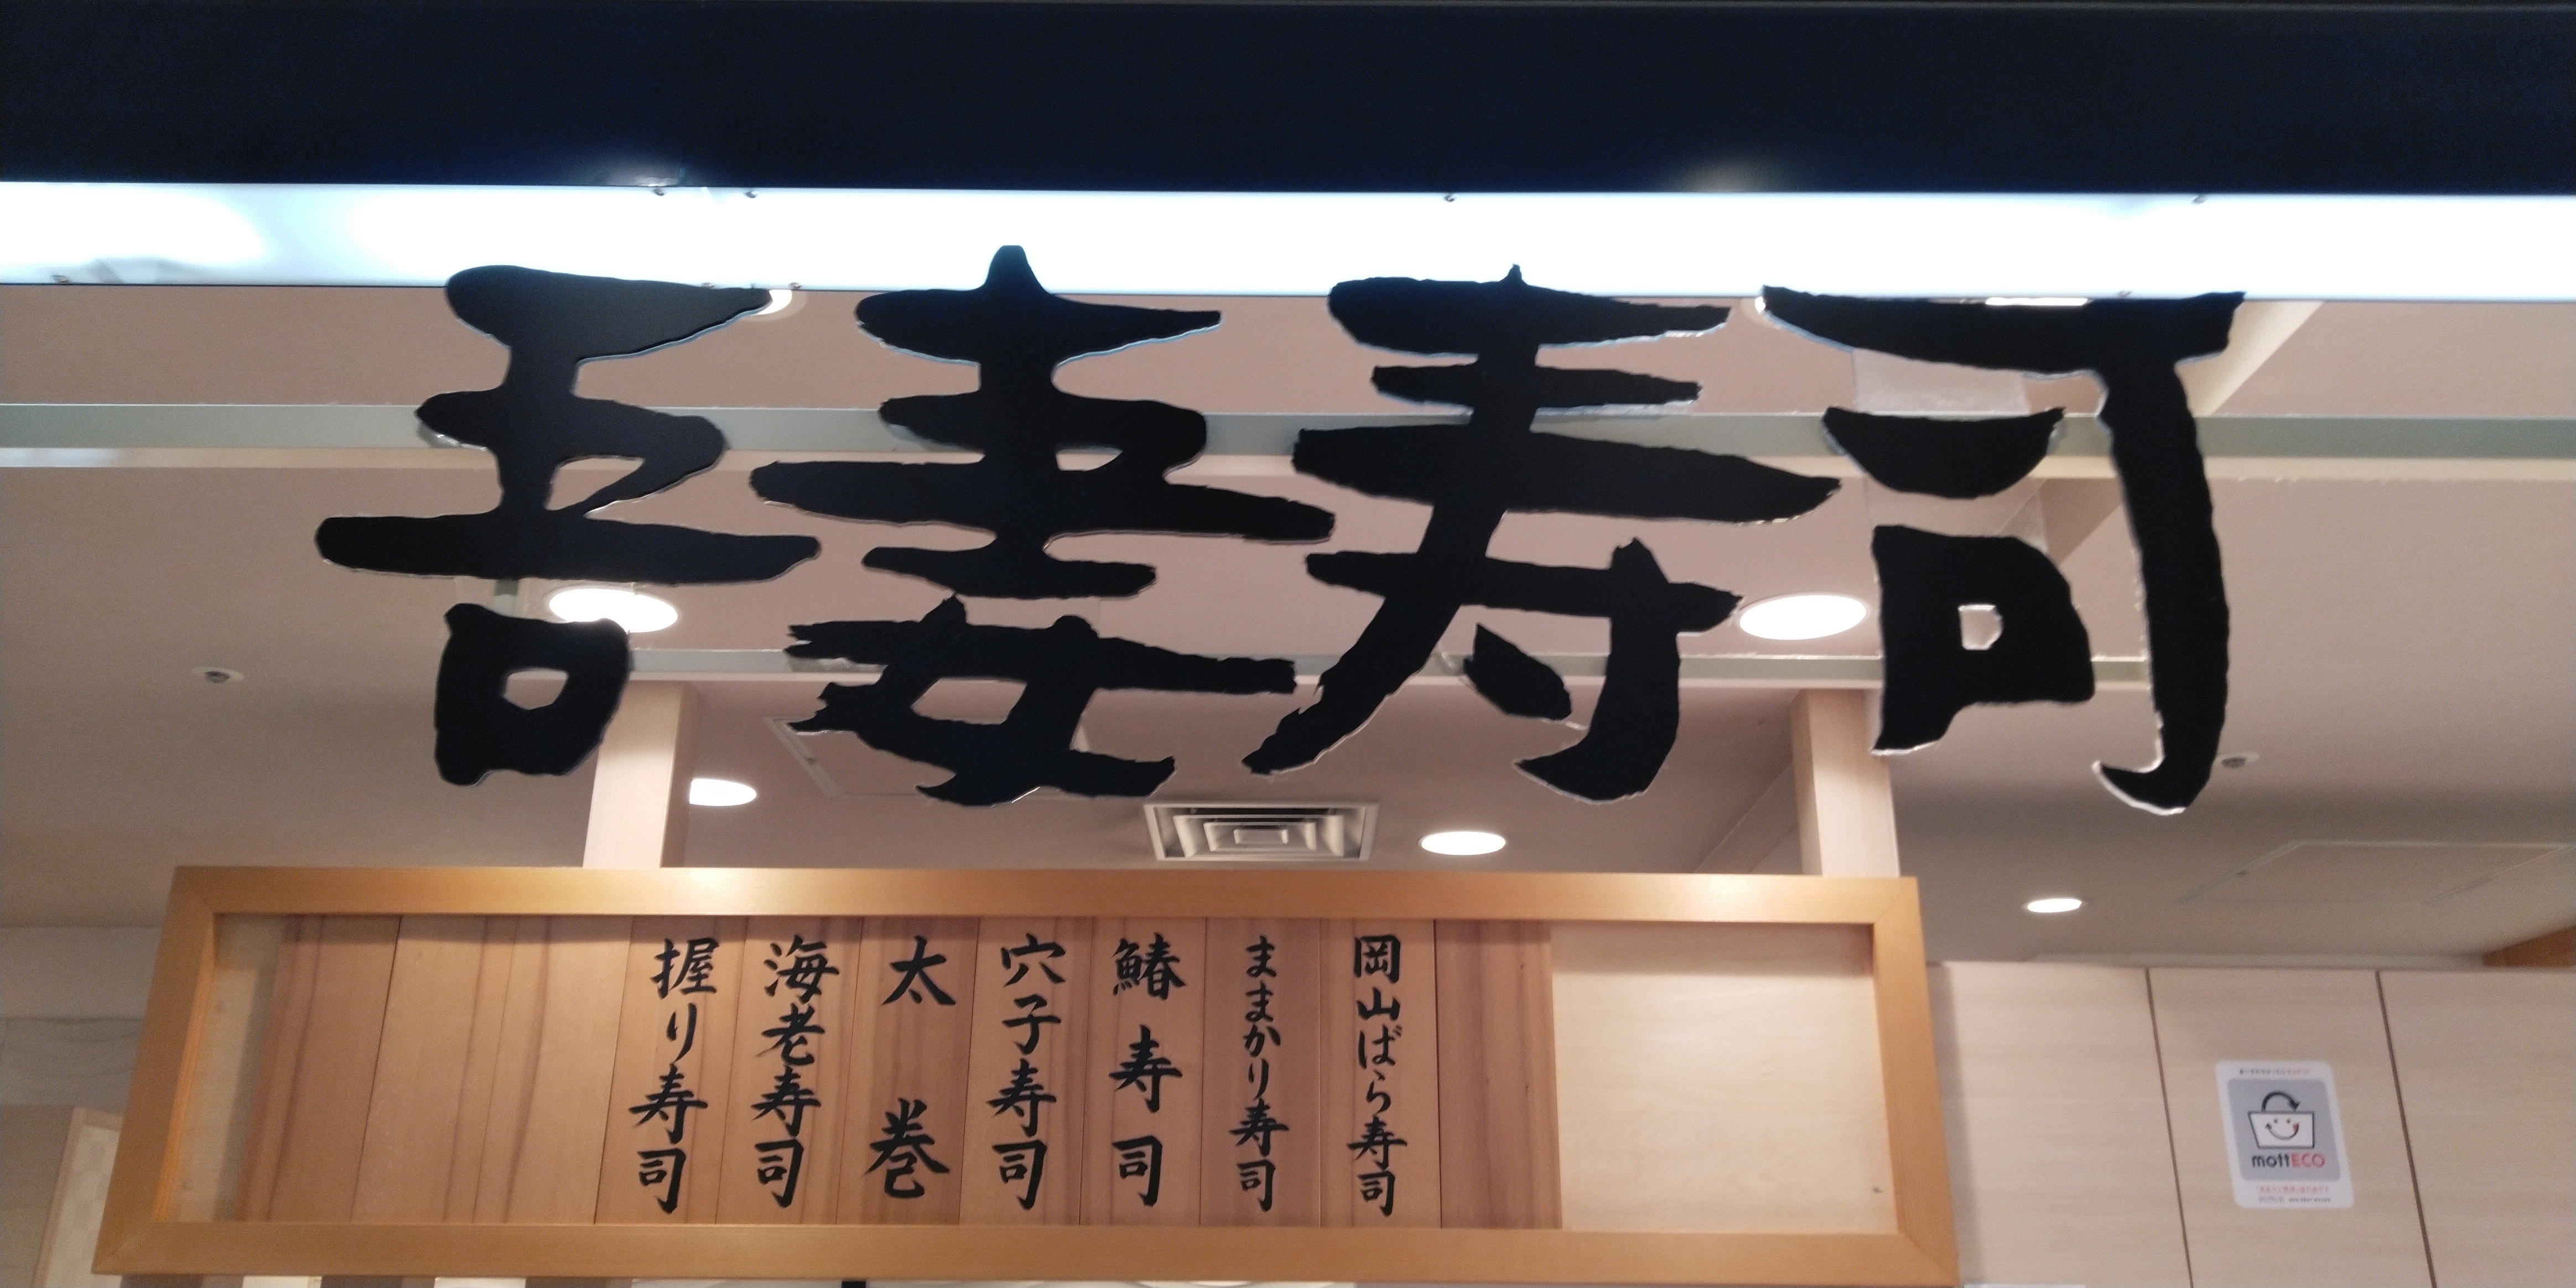 吾妻寿司
岡山ばら寿司
ままかり寿司
鰆寿司
穴子寿司
太巻
海老寿司
握り寿司
mottECO